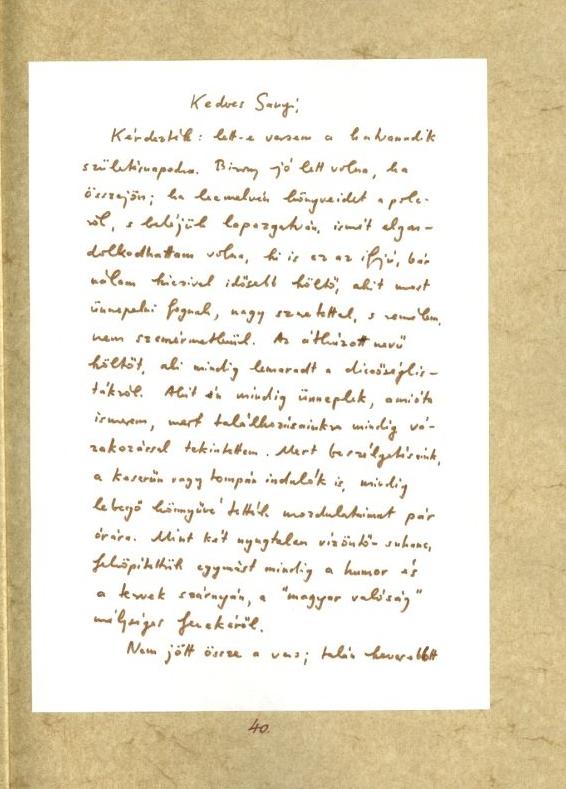 Kedves Sanyi,
Kérdezték: lett-e versem a hatvanadik
születésnapodra. Bizony jó lett volna, ha
összejön; ha leemelvén könyveidet a polc-
ról, s beléjük lapozgatván, ismét elgon-
dolkodhattam volna, ki is ez az ifjú, bár
nálam kicsivel idősebb költő, akit most
ünnepelni fognak, nagy szeretettel, s remélem,
nem szemérmetlenül. Az áthúzott nevű
költőt, aki mindig lemaradt a dicsőséglis-
tákról. Akit én mindig ünneplek, amióta
ismerem, mert találkozásainkra mindig vá-
rakozással tekintettem. Mert beszélgetéseink,
a keserűn vagy tompán indulók is, mindig
lebegő könnyűvé tették mozdulataimat pár
órára. Mint két nyugtalan vízöntő-suhanc,
felröpítettük egymást mindig a humor és
a tervek szárnyán, a "magyar valóság"
mélységes fenekéről.
Nem jött össze a vers; talán kevesebbett
40.